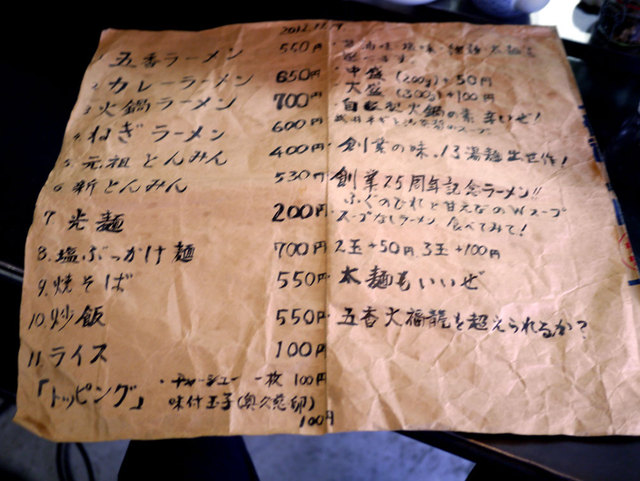 2012.11.
五香ラーメン 550円
2 カレーラーメン 650円
3 火鍋ラーメン 700円
4 ねぎラーメン 600円
5 元祖とんみん 400円
6 新とんみん 530円
7 光麺 200円
8. 塩ぶっかけ麺 700円
9. 焼そば 550円
10. 炒飯 550円
11. ライス 100円
「トッピング」 ・チャーシュー 一枚 100円
味付玉子(奥久慈卵)
100円
中盛 (200g)+50円
大盛 (300g)+100円
火鍋の素 辛いぜ!
創業の味、13湯麺出世作!
創業25周年記念ラーメン!!
ふぐのひれと甘えびのWスープ
スープなしラーメン 食べてみて!
2玉+50円 3玉+100円
太麺もいいぜ
五香火福龍を超えられるか?